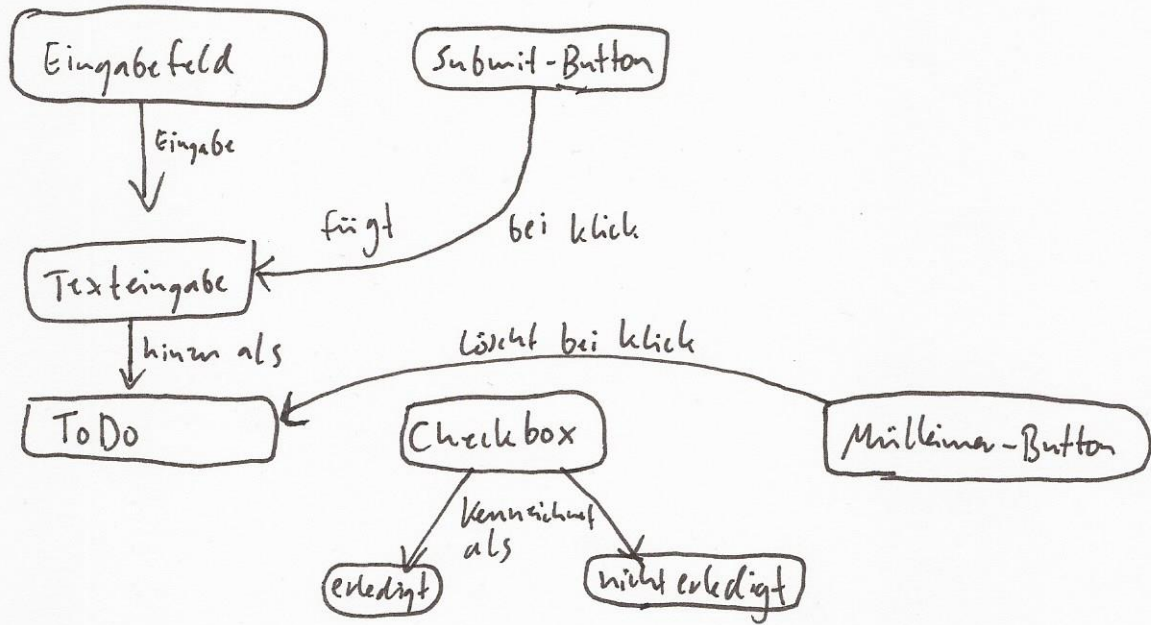 Eingabefeld
Submit-Button
Eingabe
fügt
bei klick
Texteingabe
hinzu als
löscht bei klick
ToDo
Checkbox
Mülleimer-Button
kennzeichnet
als
erledigt
nicht erledigt